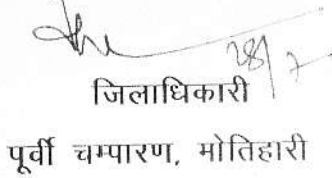 28/7
जिलाधिकारी
पूर्वी चम्पारण, मोतिहारी